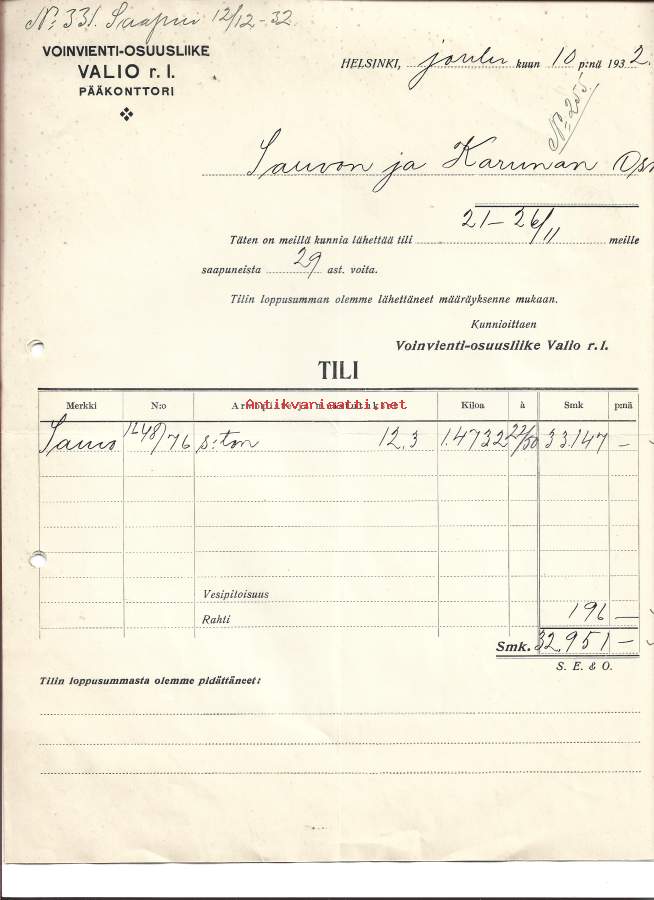 No: 331. Saapui 12/12-32.
VOINVIENTI-OSUUSLIIKE
VALIO r. l.
PÄÄKONTTORI
HELSINKI, joulu kuun 10 p:nä 1932.
No: 255
Sauvon ja Karunan Osm
Täten on meillä kunnia lähettää tili 21-26/11 meille
saapuneista 29 ast. voita.
Tilin loppusumman olemme lähettäneet määräyksenne mukaan.
Kunnioittaen
Voinvienti-osuusliike Valio r. l.
TILI
Merkki N:o Kiloa à Smk p:nä
Antikvariaatti.net
1248/76 s:ton 12.3 1.473.2 22/50 33.147 —
Vesipitoisuus
Rahti 196 —
Smk. 32.951 —
S. E. & O.
Tilin loppusummasta olemme pidättäneet: